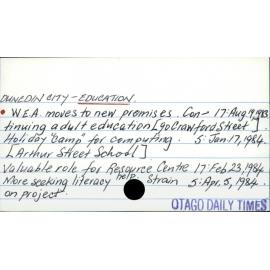 DUNEDIN CITY - EDUCATION.
• W.E.A. moves to new premises. Con- 17: Aug. 19, 1983
tinuing adult education [90 Crawford Street].
Holiday "Camp" for computing. 5: Jan. 17, 1984.
[Arthur Street School]
Valuable role for Resource Centre 17: Feb 23, 1984
More seeking literacy help. Strain 5: Apr. 5, 1984.
on project.
OTAGO DAILY TIMES